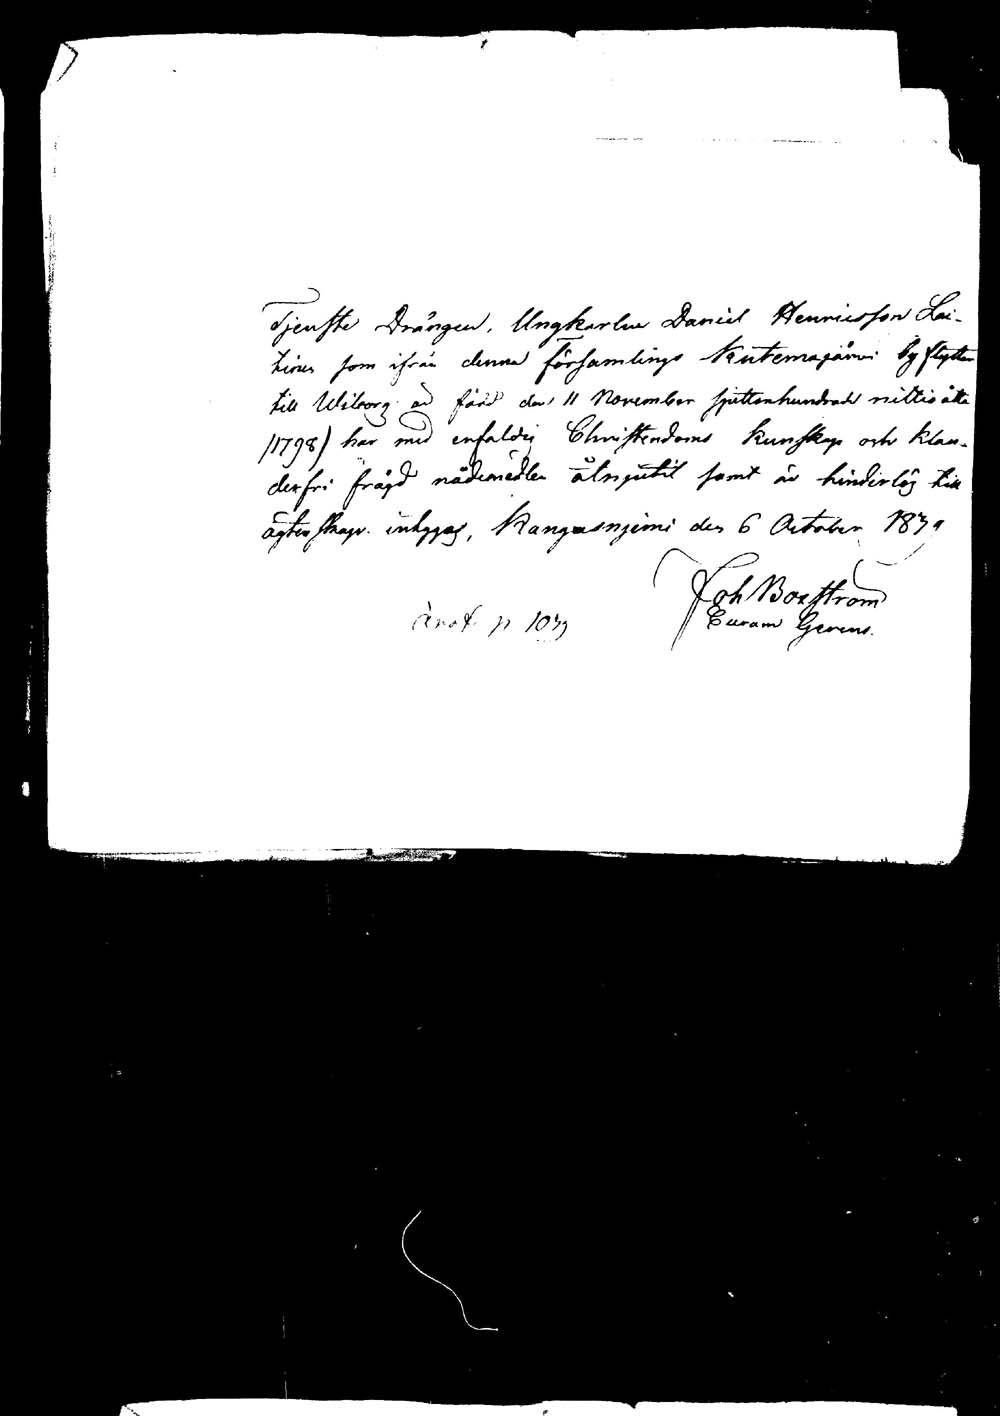 Tjenste Drängen, Ungkarlen Daniel Henricsson Lai-
tinen som ifrån denna församlings Kutemajärvi by flyttar
till Wiborg är född den 11 November sjuttonhundrade nittioåtta
(1798) har med enfaldig Christendoms kunskap och klan-
derfri frägd nådemedlen åtnjutit samt är hinderlös till
ägtenskaps ingående, Kangasniemi den 6 October 1839
Joh Boxström
Curam Gerens.
anot p 1039